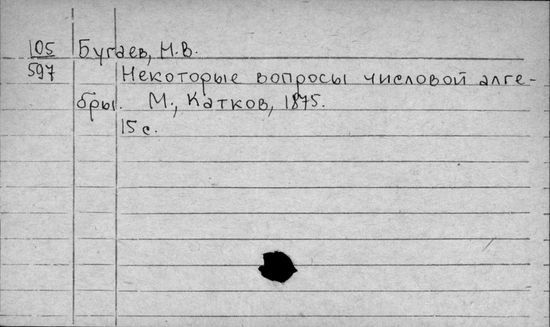 105 Бугаев, Н.В.
597 Некоторые вопросы числовой алге-
бры. М., Катков, 1875.
15 с.